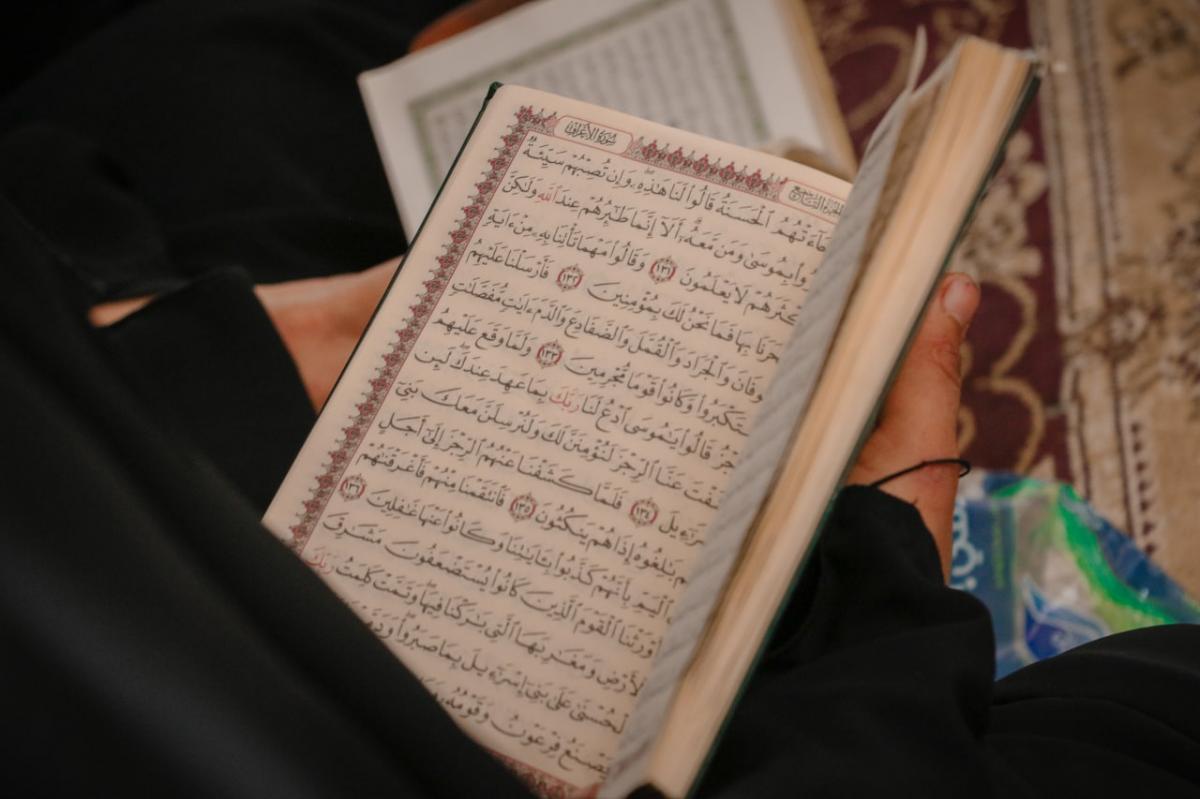 سُورَةُ الأَعْرَافِ
الجُزْءُ التَّاسِعُ
ٱلْحَسَنَةُ قَالُوا۟ لَنَا هَٰذِهِۦ وَإِن تُصِبْهُمْ سَيِّئَةٌ
بِمُوسَىٰ وَمَن مَّعَهُۥٓ أَلَآ إِنَّمَا طَٰٓئِرُهُمْ عِندَ ٱللَّهِ وَلَٰكِنَّ
كْثَرَهُمْ لَا يَعْلَمُونَ ١٣١ وَقَالُوا۟ مَهْمَا تَأْتِنَا بِهِۦ مِنْ ءَايَةٍ
حَرَنَا بِهَا فَمَا نَحْنُ لَكَ بِمُؤْمِنِينَ ١٣٢ فَأَرْسَلْنَا عَلَيْهِمُ
وفَانَ وَٱلْجَرَادَ وَٱلْقُمَّلَ وَٱلضَّفَادِعَ وَٱلدَّمَ ءَايَٰتٍ مُّفَصَّلَٰتٍ
سْتَكْبَرُوا۟ وَكَانُوا۟ قَوْمًا مُّجْرِمِينَ ١٣٣ وَلَمَّا وَقَعَ عَلَيْهِمُ
جْزُ قَالُوا۟ يَٰمُوسَى ٱدْعُ لَنَا رَبَّكَ بِمَا عَهِدَ عِندَكَ لَئِن
فْتَ عَنَّا ٱلرِّجْزَ لَنُؤْمِنَنَّ لَكَ وَلَنُرْسِلَنَّ مَعَكَ بَنِىٓ
رَٰٓءِيلَ ١٣٤ فَلَمَّا كَشَفْنَا عَنْهُمُ ٱلرِّجْزَ إِلَىٰٓ أَجَلٍ
م بَٰلِغُوهُ إِذَا هُمْ يَنكُثُونَ ١٣٥ فَٱنتَقَمْنَا مِنْهُمْ فَأَغْرَقْنَٰهُمْ
ٱلْيَمِّ بِأَنَّهُمْ كَذَّبُوا۟ بِـَٔايَٰتِنَا وَكَانُوا۟ عَنْهَا غَٰفِلِينَ ١٣٦
وْرَثْنَا ٱلْقَوْمَ ٱلَّذِينَ كَانُوا۟ يُسْتَضْعَفُونَ مَشَٰرِقَ
لْأَرْضِ وَمَغَٰرِبَهَا ٱلَّتِى بَٰرَكْنَا فِيهَا وَتَمَّتْ كَلِمَتُ رَبِّكَ
لْحُسْنَىٰ عَلَىٰ بَنِىٓ إِسْرَٰٓءِيلَ بِمَا صَبَرُوا۟
يَصْنَعُ فِرْعَوْنُ وَقَوْمُهُۥ